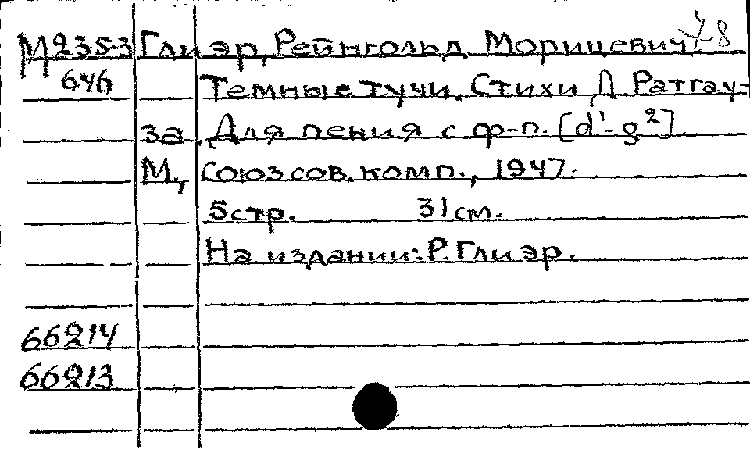 М235-3 Глиэр, Рейнгольд Морицевич. 78
646 Темные тучи. Стихи Д. Ратгау-
за. Для пения с ф-п. [d¹-g²]
М., Союз сов. комп., 1947.
5 стр. 31 см.
На издании: Р. Глиэр.
66214
66213